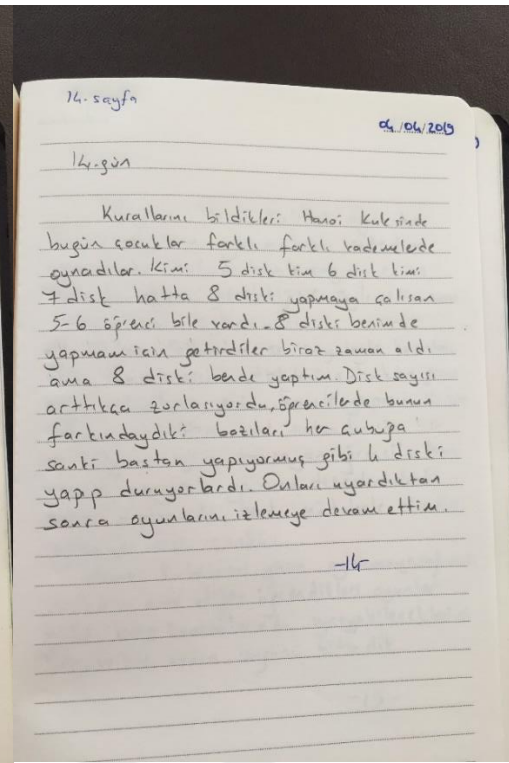 14. sayfa
04/04/2019
14. gün
Kurallarını bildikleri Hanoi Kulesinde
bugün çocuklar farklı farklı kademelerde
oynadılar. Kimi 5 disk kim 6 disk kimi
7 disk hatta 8 diski yapmaya çalışan
5-6 öğrenci bile vardı. 8 diski benimde
yapmam için getirdiler biraz zaman aldı
ama 8 diski bende yaptım. Disk sayısı
arttıkça zorlaşıyordu, öğrencilerde bunun
farkındaydıki bazıları her çubuğa
sanki baştan yapıyormuş gibi 4 diski
yapıp duruyorlardı. Onları uyardıktan
sonra oyunlarını izlemeye devam ettim.
-14